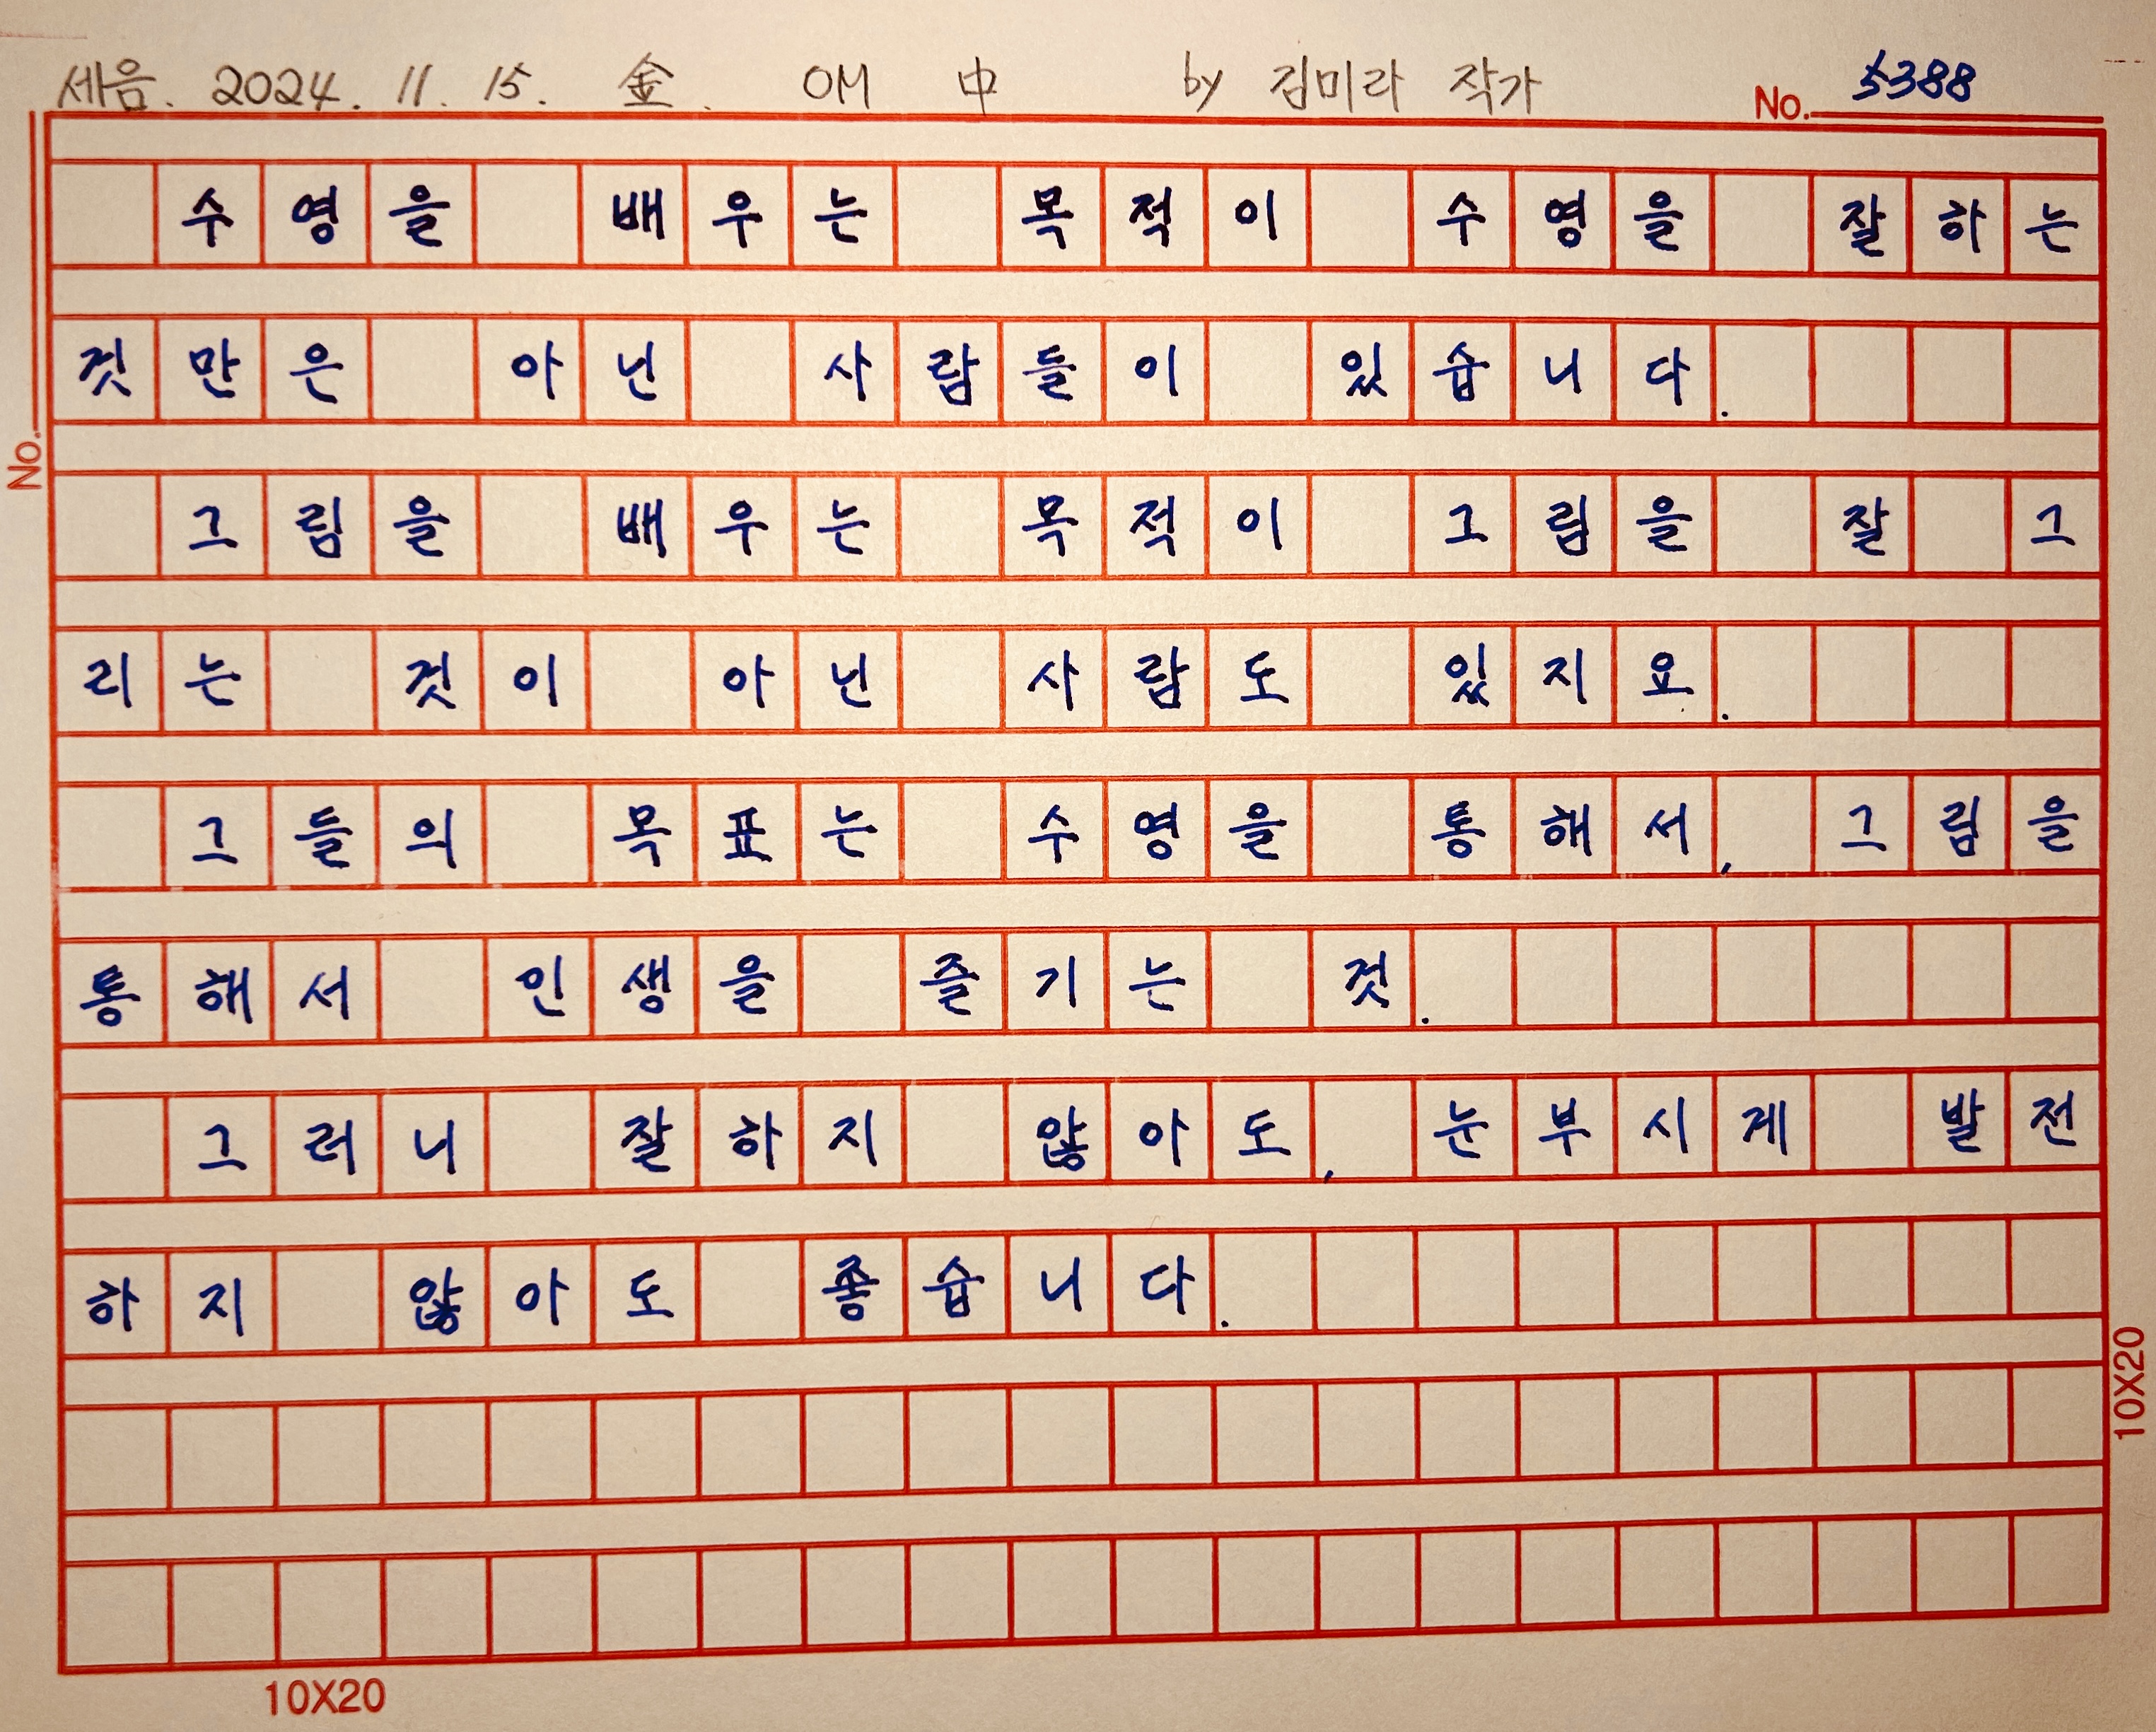 세음. 2024. 11. 15. 金. OM 中 by 김미라 작가 No. 5388
수영을 배우는 목적이 수영을 잘하는
것만은 아닌 사람들이 있습니다.
그림을 배우는 목적이 그림을 잘 그
리는 것이 아닌 사람도 있지요.
그들의 목표는 수영을 통해서, 그림을
통해서 인생을 즐기는 것.
그러니 잘하지 않아도, 눈부시게 발전
하지 않아도 좋습니다.
No.
10X20
10X20